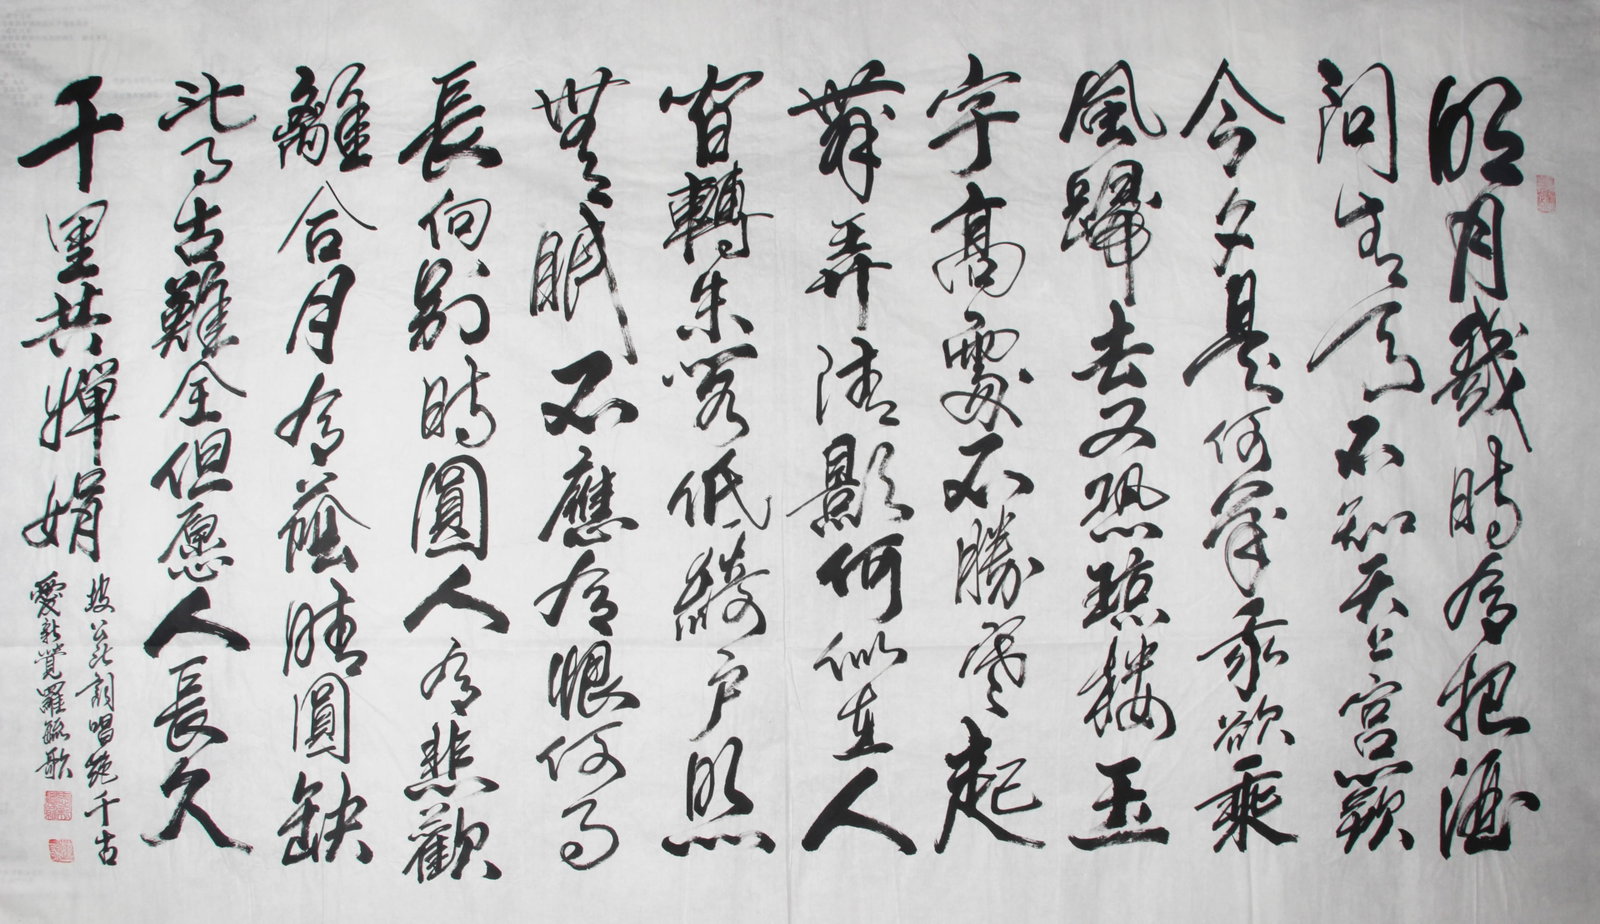 明月幾時有把酒
問青天不知天上宮闕
今夕是何年我欲乘
風歸去又恐琼樓玉
宇高處不勝寒起
舞弄清影何似在人
間轉朱閣低綺戶照
無眠不應有恨何事
長向別時圓人有悲歡
離合月有蔭晴圓缺
此事古難全但愿人長久
千里共嬋娟
坡公此詞唱絕千古
愛新覺羅毓歌